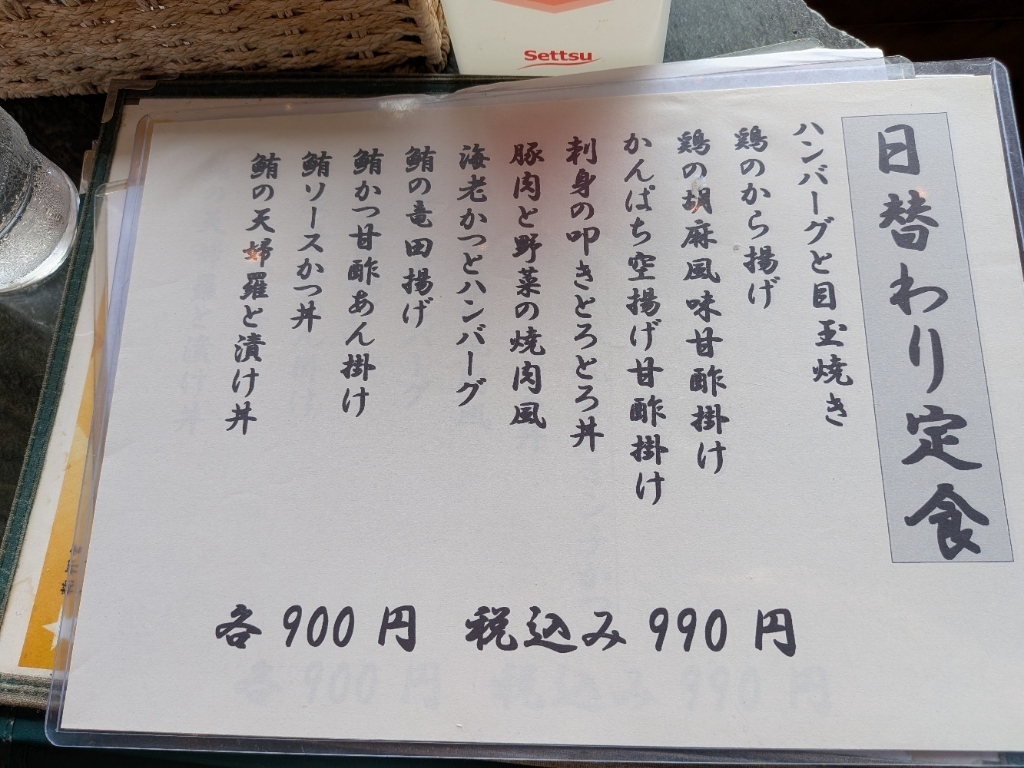 Settsu
日替わり定食
ハンバーグと目玉焼き
鶏のから揚げ
鶏の胡麻風味甘酢掛け
かんぱち空揚げ甘酢掛け
刺身の叩きとろとろ丼
豚肉と野菜の焼肉風
海老かつとハンバーグ
鮪の竜田揚げ
鮪かつ甘酢あん掛け
鮪ソースかつ丼
鮪の天婦羅と漬け丼
各900円 税込み990円